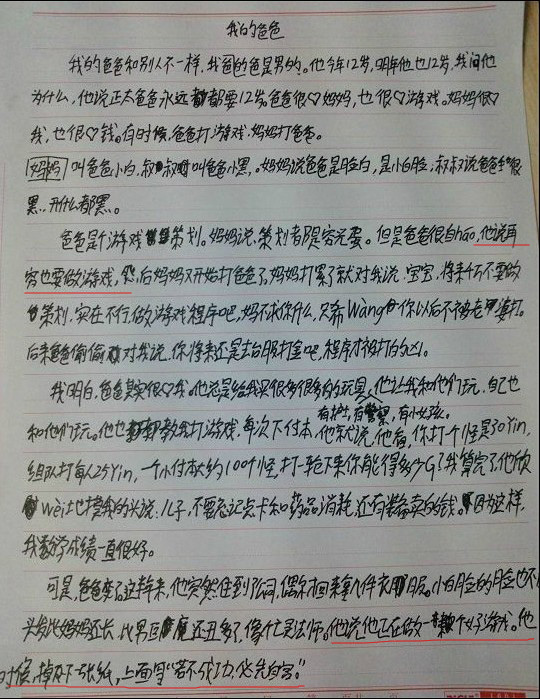 我的爸爸
我的爸爸和别人不一样,我爸的爸是男的。他今年12岁,明年他也12岁,我问他
为什么,他说正太爸爸永远都要12岁。爸爸很♡妈妈,也很♡游戏。妈妈很♡
我,也很♡钱。有时候,爸爸打游戏,妈妈打爸爸。
妈妈叫爸爸小白,叔叔叫爸爸小黑。妈妈说爸爸是脸白,是小白脸,叔叔说爸爸很
黑,开什么都黑。
爸爸是个游戏策划。妈妈说,策划者都是穷光蛋。但是爸爸很自hāo,他说再
穷也要做游戏,然后妈妈又开始打爸爸了,妈妈打累了就对我说,宝宝,将来千万不要做
策划,实在不行做游戏程序吧,妈不求你什么,只希Wàng你以后不被老婆打。
后来爸爸偷偷对我说,你将来还是去台服打金吧,程序才被打的凶。
我明白,爸爸其实很♡我。他总是给我买很多很多的玩具,他让我和他们玩,自己也
有护士,有警察,有小女孩。
和他们玩。他也教我打游戏,每次下付本,他就说,他看,你打个怪是30yín,
组队打每人25yín,一个小付本大约100个怪,打一轮下来你能得多少G了我算完了,他欣
Wèi土也摸我的头说:儿子,不要忘记点卡和药品消耗,还有装备卖的钱。因为这样,
我数学成绩一直很好。
可是,爸爸变了。这半年来,他突然住到了公司,偶尔回来拿几件衣服。小白脸的脸也不
头发比妈妈还长,比男巨魔还丑多了,像个亡灵法师。他说他正在做一个好游戏。他
时候,掉下一张纸,上面写"若不成功,必先自宫"。